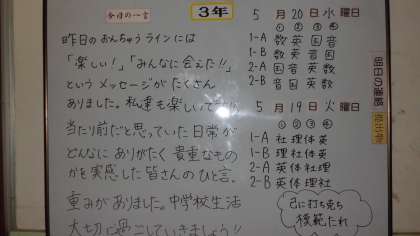 今日の一言
3年
昨日のおんちゅうラインには
「楽しい！」「みんなに会えた!!」
というメッセージがたくさん
ありました。私達も楽しい
当たり前だと思っていた日常が
どんなに ありがたく 貴重なもの
かを実感した皆さんのひと言。
重みがありました。中学校生活
大切に過ごしていきましょう!!
5月20日水曜日
① ② ③ ④
1-A 数英国音
1-B 数英国音
2-A 国音英数
2-B 国音英数
5月19日火曜日
① ② ③ ④
1-A 社理体英
1-B 理社体英
2-A 英体社理
2-B 英体理社
明日の連絡
己に打ち克ち
後範たれ